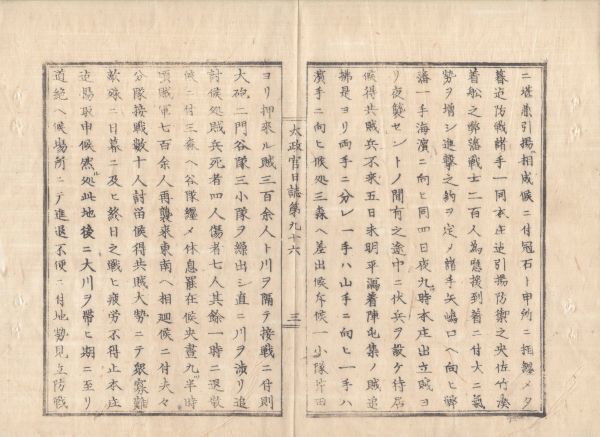 ニ堪兼引揚相成候ニ付冠石ト申所ニ相纒メタ
暮迄防戦諸手一同本庄迄引揚防禦之央佐竹湊
着船之弊藩戦士二百人為應援到着ニ付大ニ氣
勢ヲ増シ進撃之約ヲ定メ諸手矢嶋口ヘ向ヒ弊
藩一手海濱ニ向ヒ同四日夜九時本庄出立賊ヨ
リ夜襲セントノ聞有之途中ニ伏兵ヲ設ケ待居
候得共賊兵不来五日未明平澤着陣屯集ノ賊追
拂是ヨリ両手ニ分レ一手ハ山手ニ向ヒ一手ハ
濱手ニ向ヒ候処三森ヘ差出候斥候一小隊片田
太政官日誌第九十六
三
ヨリ押来ル賊三百余人ト川ヲ隔テ接戦ニ付則
大砲二門谷隊三小隊ヲ繰出シ直ニ川ヲ渉リ追
討候処賊兵死者四人傷者七人其餘一時ニ退散
候ニ付三森ヘ谷隊纒メ休息罷在候央晝九半時
頃賊軍七百余人再襲来東南ヘ相廻候ニ付夫々
分隊接戦数十人討留候得共賊大勢ニテ衆寡難
敵殊ニ日暮ニ及ヒ終日之戦ヒ疲労不得止本庄
迄揚取申候然処此地後ニ大川ヲ帶ヒ期ニ至リ
道絶ヘ候場所ニテ進退不便ニ付地勢見立防戦